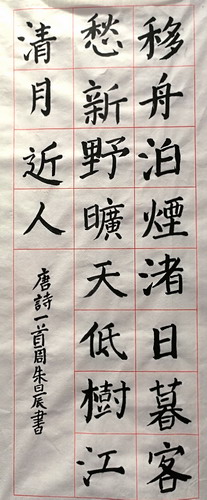 移舟泊煙渚日暮客
愁新野曠天低樹江
清月近人
唐詩一首周朱旦辰書